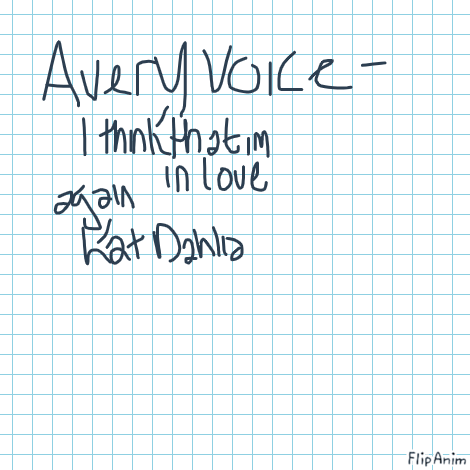 Avery voice -
I thnk that im
in love
again
Kat Dahlia
FlipAnim